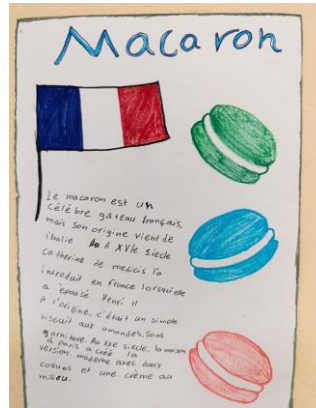 Macaron
Le macaron est un
célèbre gateau français,
mais son origine vient de
italie Au XVIe siecle
catherine de medicis l'a
introduit en France lorsqu'elle
a épousé Henri II
A l'origine, c'était un simple
biscuit aux amandes, sans
garniture. Au XXe siecle, la maison
à Paris a créé la
version moderne avec deux
coques et une crème au
milieu.